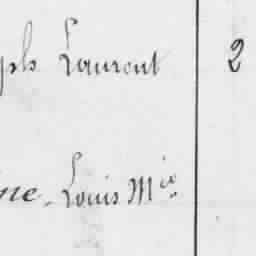 ph Laurent 2
ne Louis Mie